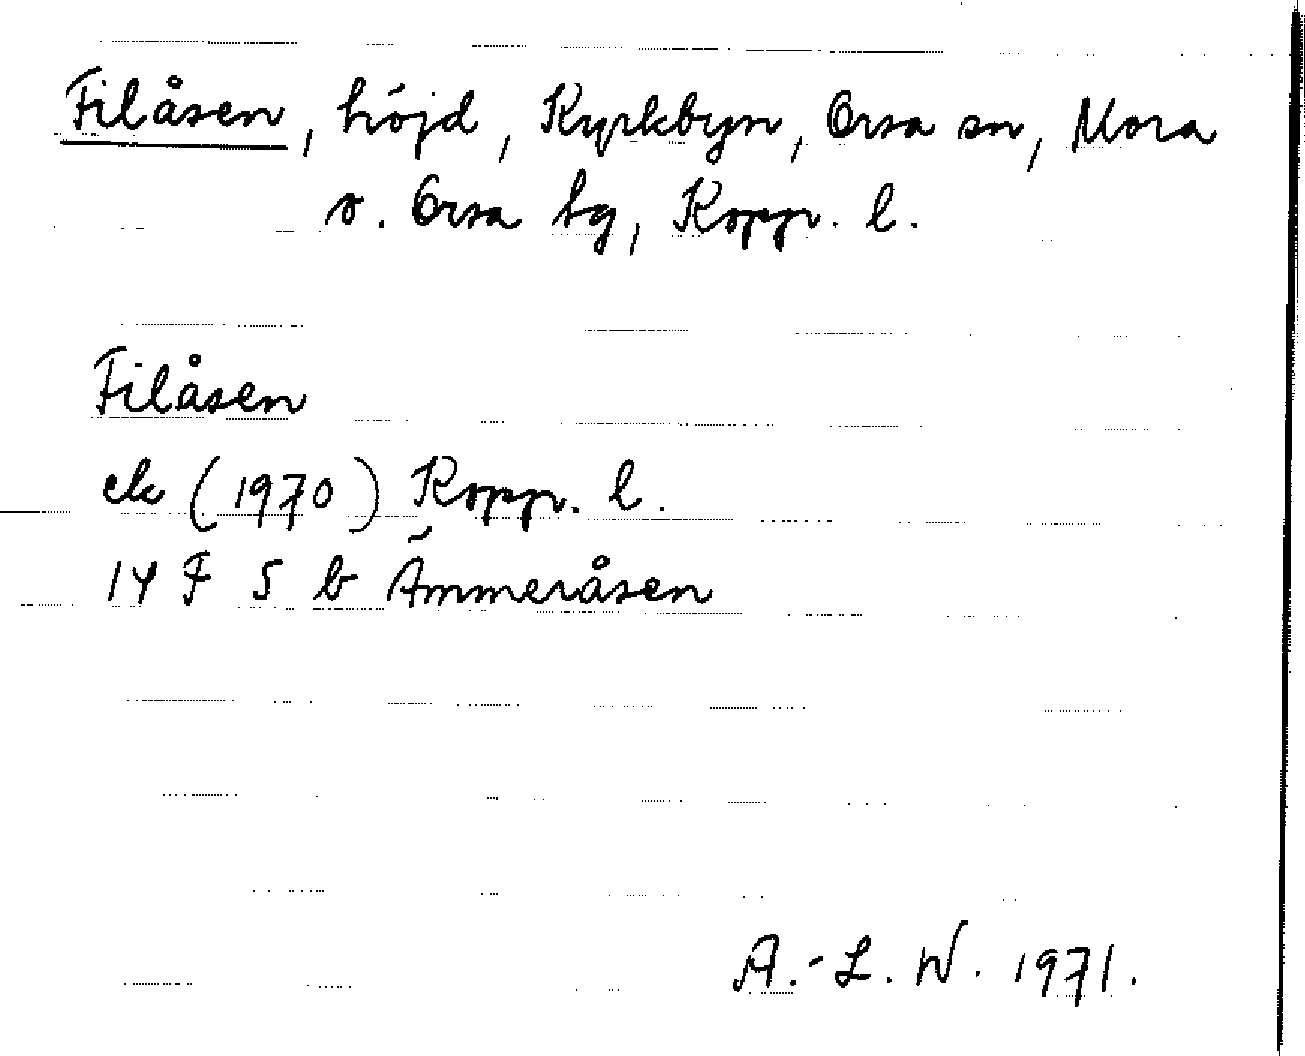 Filåsen, höjd, Kyrkbyn, Orsa sn, Mora
o. Orsa tg, Kopp. l.
Filåsen
ek (1970) Kopp. l.
14 F 5 b Ämmeråsen
A.-L. W. 1971.